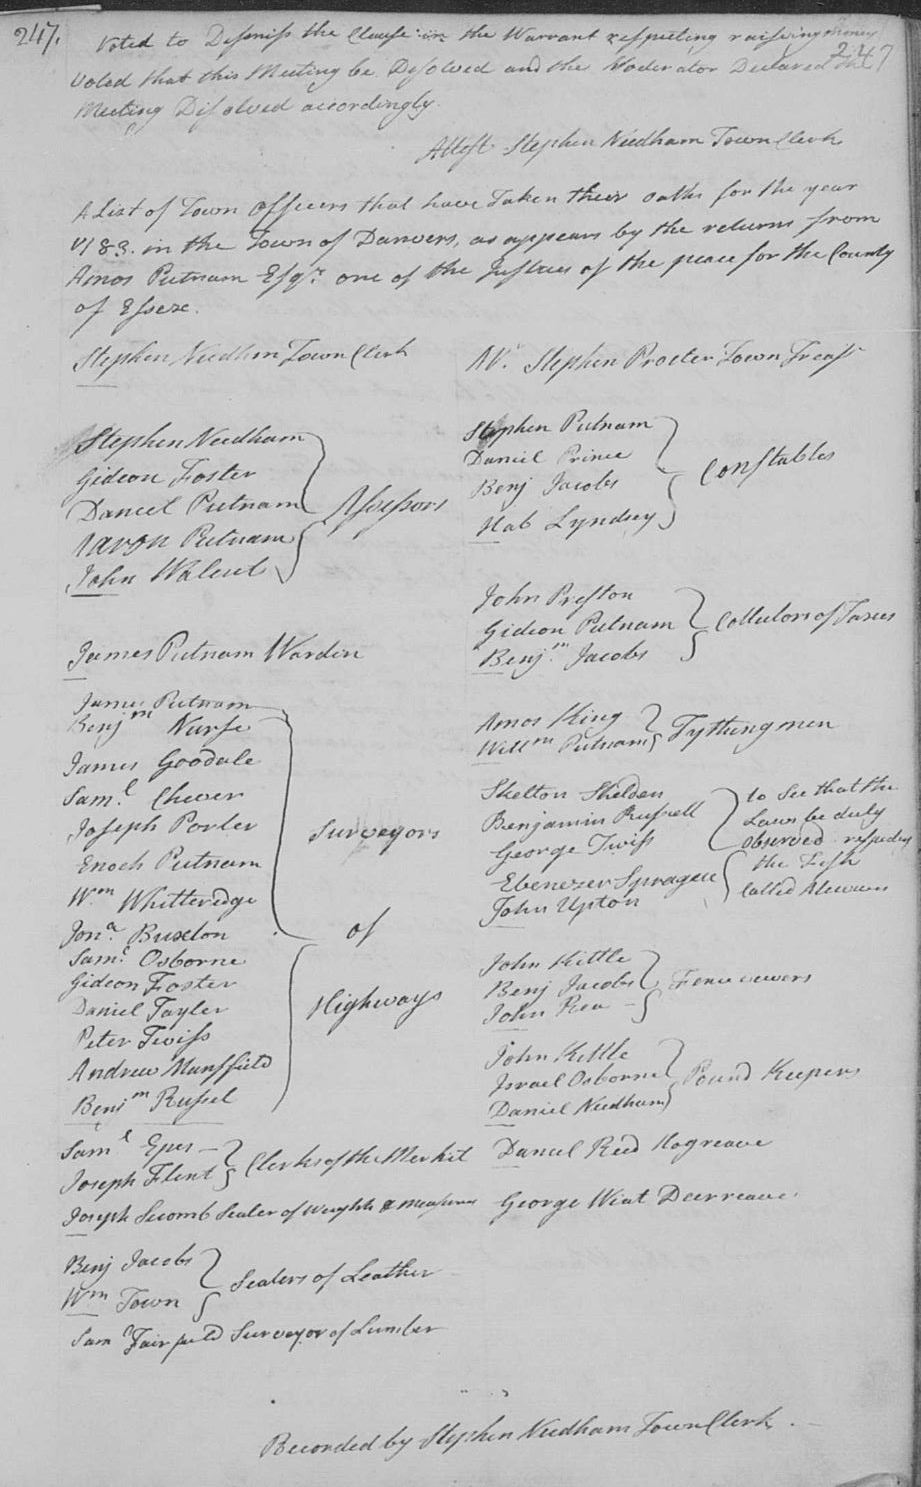 247.
Voted to Dismiss the Clause in the Warrant respecting raising money
247
Voted that this Meeting be Disolved and the Moderator Declared the
Meeting Disolved accordingly.
Attest Stephen Needham Town Clerk
A List of Town officers that have Taken their oaths for the year
1783. in the Town of Danvers, as appears by the returns from
Amos Putnam Esqr. one of the Justices of the peace for the County
of Essex.
Stephen Needhm Town Clerk
Stephen Procter Town Treasr
Stephen Needham
Gideon Foster
Daniel Putnam
Aaron Putnam
John Walcut
Assessors
Stephen Putnam
Daniel Prince
Benj Jacobs
Hab Lyndsey
Constables
John Preston
Gideon Putnam
Benjm. Jacobs
Collectors of Taxes
James Putnam Warden
James Putnam
Benjm Nurse
James Goodale
Saml. Cheever
Joseph Porter
Enoch Putnam
Wm. Whitteredge
Jona. Buxton
Saml. Osborne
Gideon Foster
Daniel Tayler
Peter Twiss
Andrew Mansfield
Benjm Russel
Surveyors
of
Highways
Amos King
Willm Putnam
Tythingmen
Skelton Shelden
Benjamin Russell
George Twiss
Ebenezer Sprague
John Upton
to See that the
Laws be duly
observed respecting
the Fish
Called Alewives
John Kittle
Benj Jacobs
John Rea
Fence vewers
John Kittle
Israel Osborne
Daniel Needham
Pound Keepers
Saml Epes
Joseph Flint
Clerks of the Market
Daniel Reed Hogreave
Joseph Seccomb Sealer of Weights & measures
George Wiat Deerreave
Benj Jacobs
Wm Town
Sealers of Leather
Saml Fairfield Surveyor of Lumber
Recorded by Stephen Needham Town Clerk